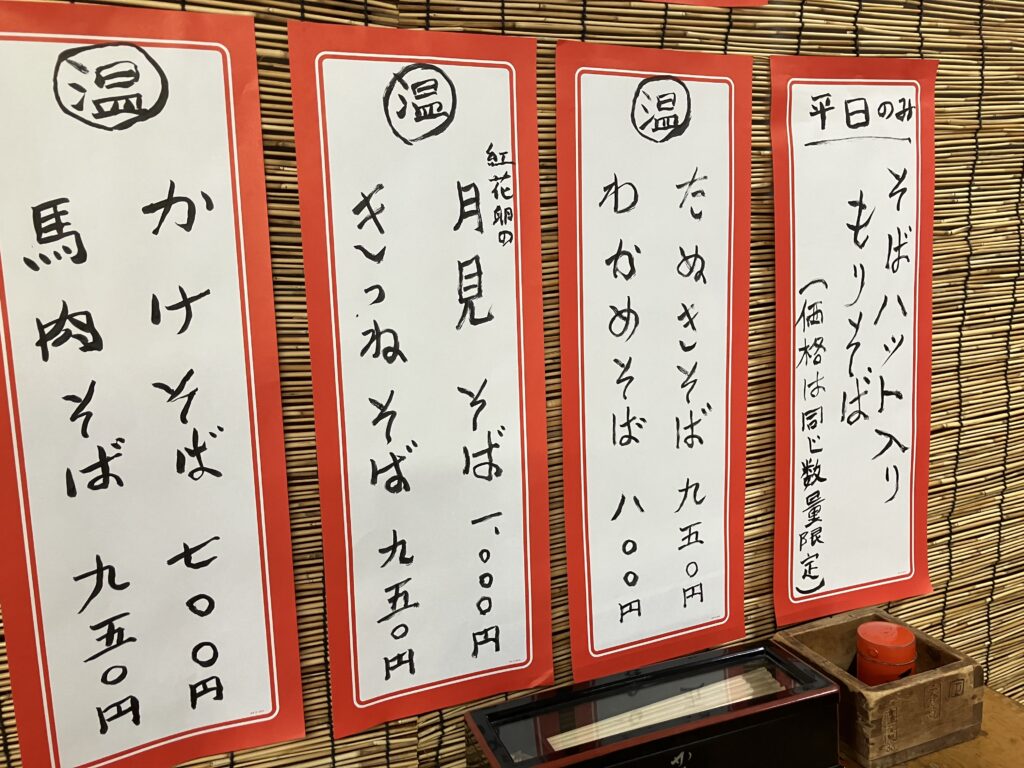 平日のみ
そばハット入り
もりそば
(価格は同じ数量限定)
温
たぬきそば 九五〇円
わかめそば 八〇〇円
温
紅花卵の
月見そば 一、〇〇〇円
きつねそば 九五〇円
温
かけそば 七〇〇円
馬肉そば 九五〇円